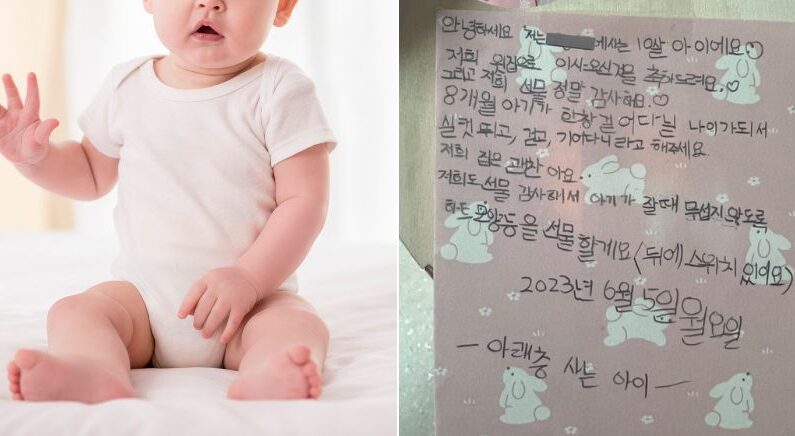 안녕하세요 저는 에사는 10살 아이에요
저희 윗집으로 이사 오신걸을 축하드려요.♡
그리고 저희 선물 정말 감사해요.♡
8개월 아기가 한창 걸어다닐 나이가 되서
실컷 뛰고, 걷고, 기어다니라고 해주세요.
저희 집은 괜찮아요.
저희도 선물 감사해서 아기가 잘때 무섭지 않도록
하트 모양등을 선물할게요 (뒤에 스위치 있어요)
2023년 6월 5일 월요일
- 아래층 사는 아이 -